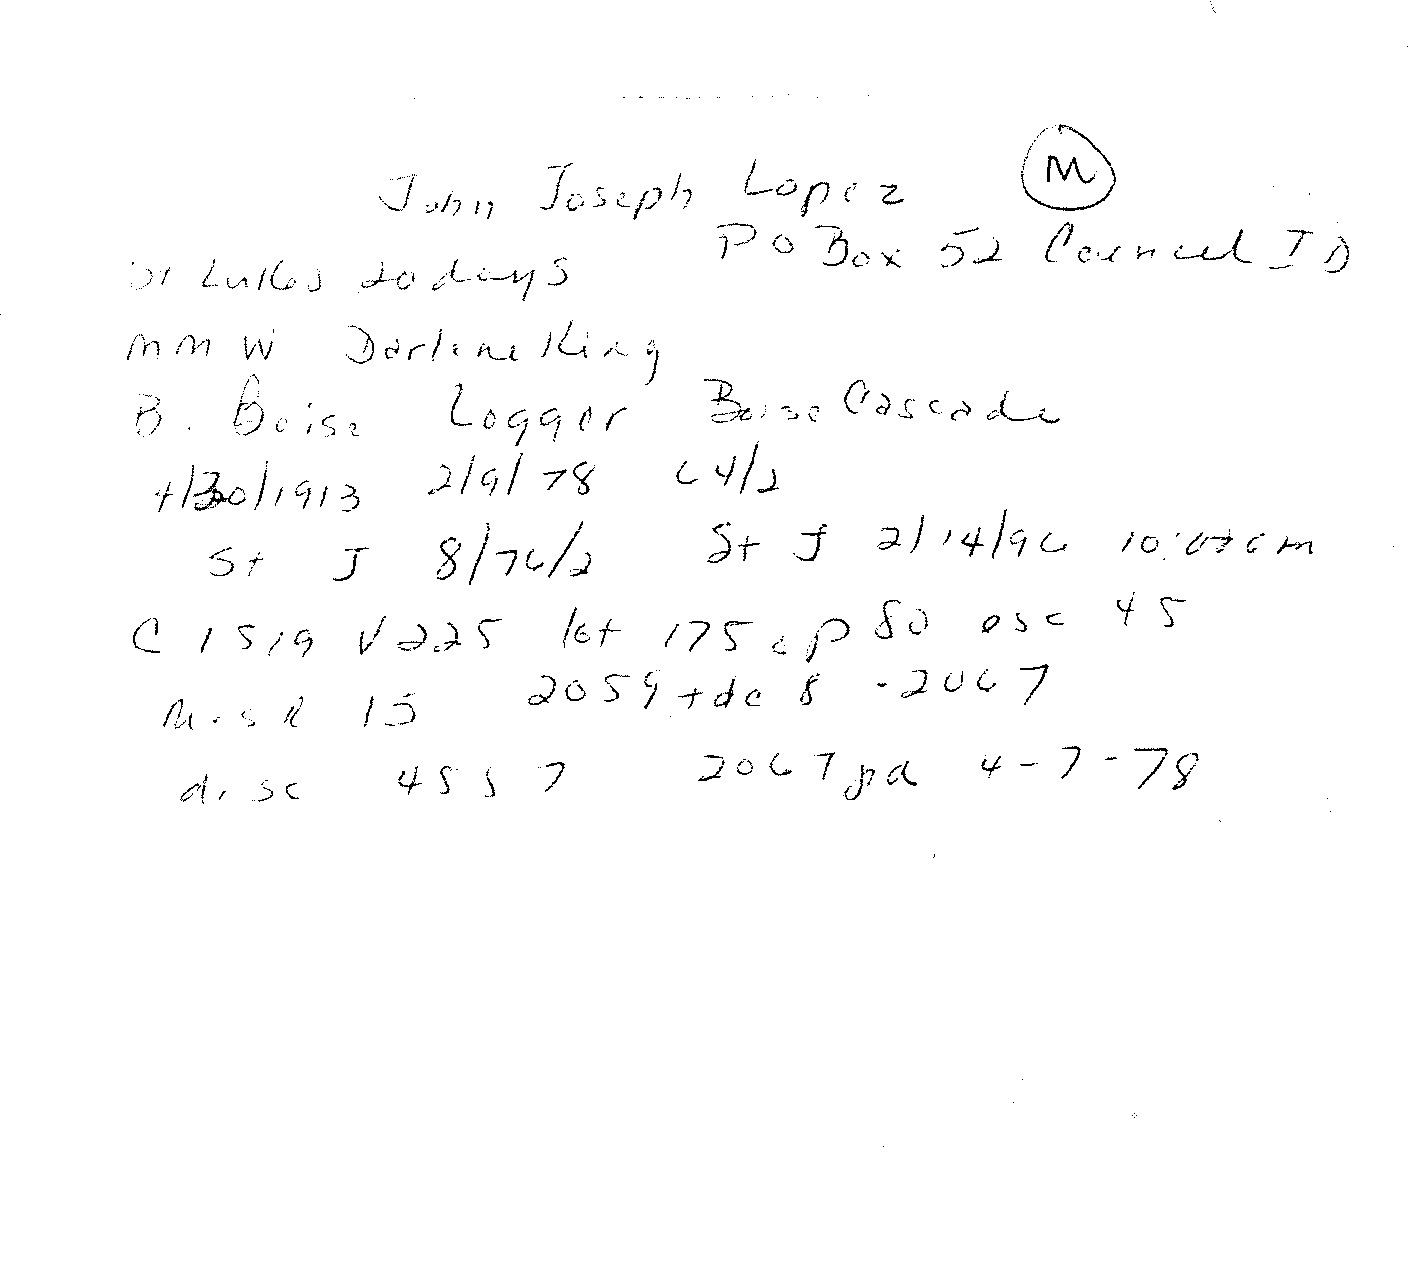 John Joseph Lopez M
PO Box 52 Council ID
St Lukes 20 days
M M W Darlene King
B. Boise Logger Boise Cascade
4/30/1913 2/9/78 C 4/2
St J 8/76/2 St J 2/14/96 10: am
C 1519 V 225 lot 175 cp 80 osc 45
15 2059 + dc 8 - 2067
disc 45 7 2067 pd 4-7-78